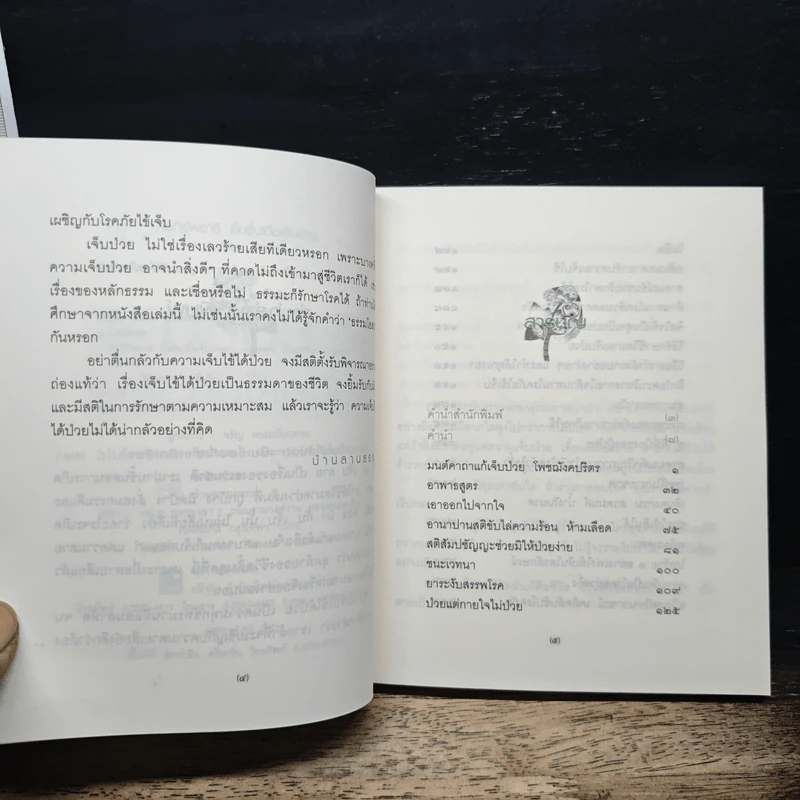 เผชิญกับโรคภัยไข้เจ็บ
เจ็บป่วย ไม่ใช่เรื่องเลวร้ายเสียทีเดียวหรอก เพราะบาง
ความเจ็บป่วย อาจนำสิ่งดีๆ ที่คาดไม่ถึงเข้ามาสู่ชีวิตเราก็ได้
เรื่องของหลักธรรม และเชื่อหรือไม่ ธรรมะก็รักษาโรคได้ ถ้า
ศึกษาจากหนังสือเล่มนี้ ไม่เช่นนั้นเราคงไม่ได้รู้จักคำว่า
กันหรอก
อย่าตื่นกลัวกับความเจ็บไข้ได้ป่วย จงมีสติตั้งรับพิจารณา
ถ่องแท้ว่า เรื่องเจ็บไข้ได้ป่วยเป็นธรรมดาของชีวิต จงยิ้มรับกับ
และมีสติในการรักษาตามความเหมาะสม แล้วเราจะรู้ว่า
ได้ป่วยไม่ได้น่ากลัวอย่างที่คิด
(๔)
สารบัญ
คำนำสำนักพิมพ์ (๓)
คำนำ
มนต์คาถาแก้เจ็บป่วย โพชฌังคปริตร ๑
อาพาธสูตร ๓๒
เอาออกไปจากใจ ๔๐
อานาปานสติขับไล่ความร้อน ห้ามเลือด ๗๕
สติสัมปชัญญะช่วยมิให้ป่วยง่าย ๘๑
ชนะเวทนา ๑๐๐
ยาระงับสรรพโรค ๑๐๙
ป่วยแต่กายใจไม่ป่วย ๑๒๕
(๕)